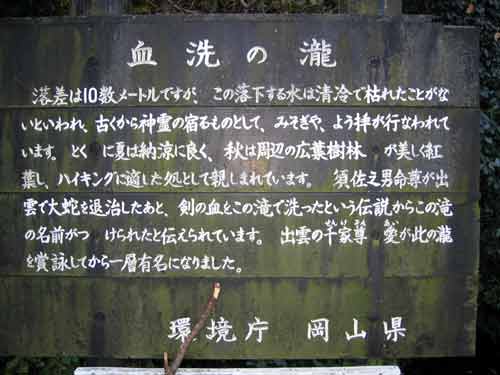 血洗の瀧
落差は10数メートルですが、この落下する水は清冷で枯れたことがな
いといわれ、古くから神霊の宿るものとして、みそぎや、よう拝が行なわれて
います。とくに夏は納涼に良く、秋は周辺の広葉樹林が美しく紅
葉し、ハイキングに適した処として親しまれています。須佐之男命尊が出
雲で大蛇を退治したあと、剣の血をこの滝で洗ったという伝説からこの滝
の名前がつけられたと伝えられています。出雲の千家尊愛が此の瀧
を賞詠してから一層有名になりました。
環境庁 岡山県